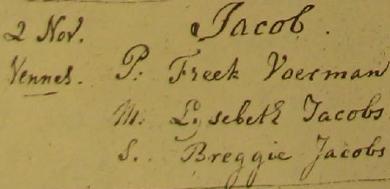 2 Nov. Jacob.
Vennes. P: Freek Voerman
M. Lysebeth Jacobs
S. Breggie Jacobs